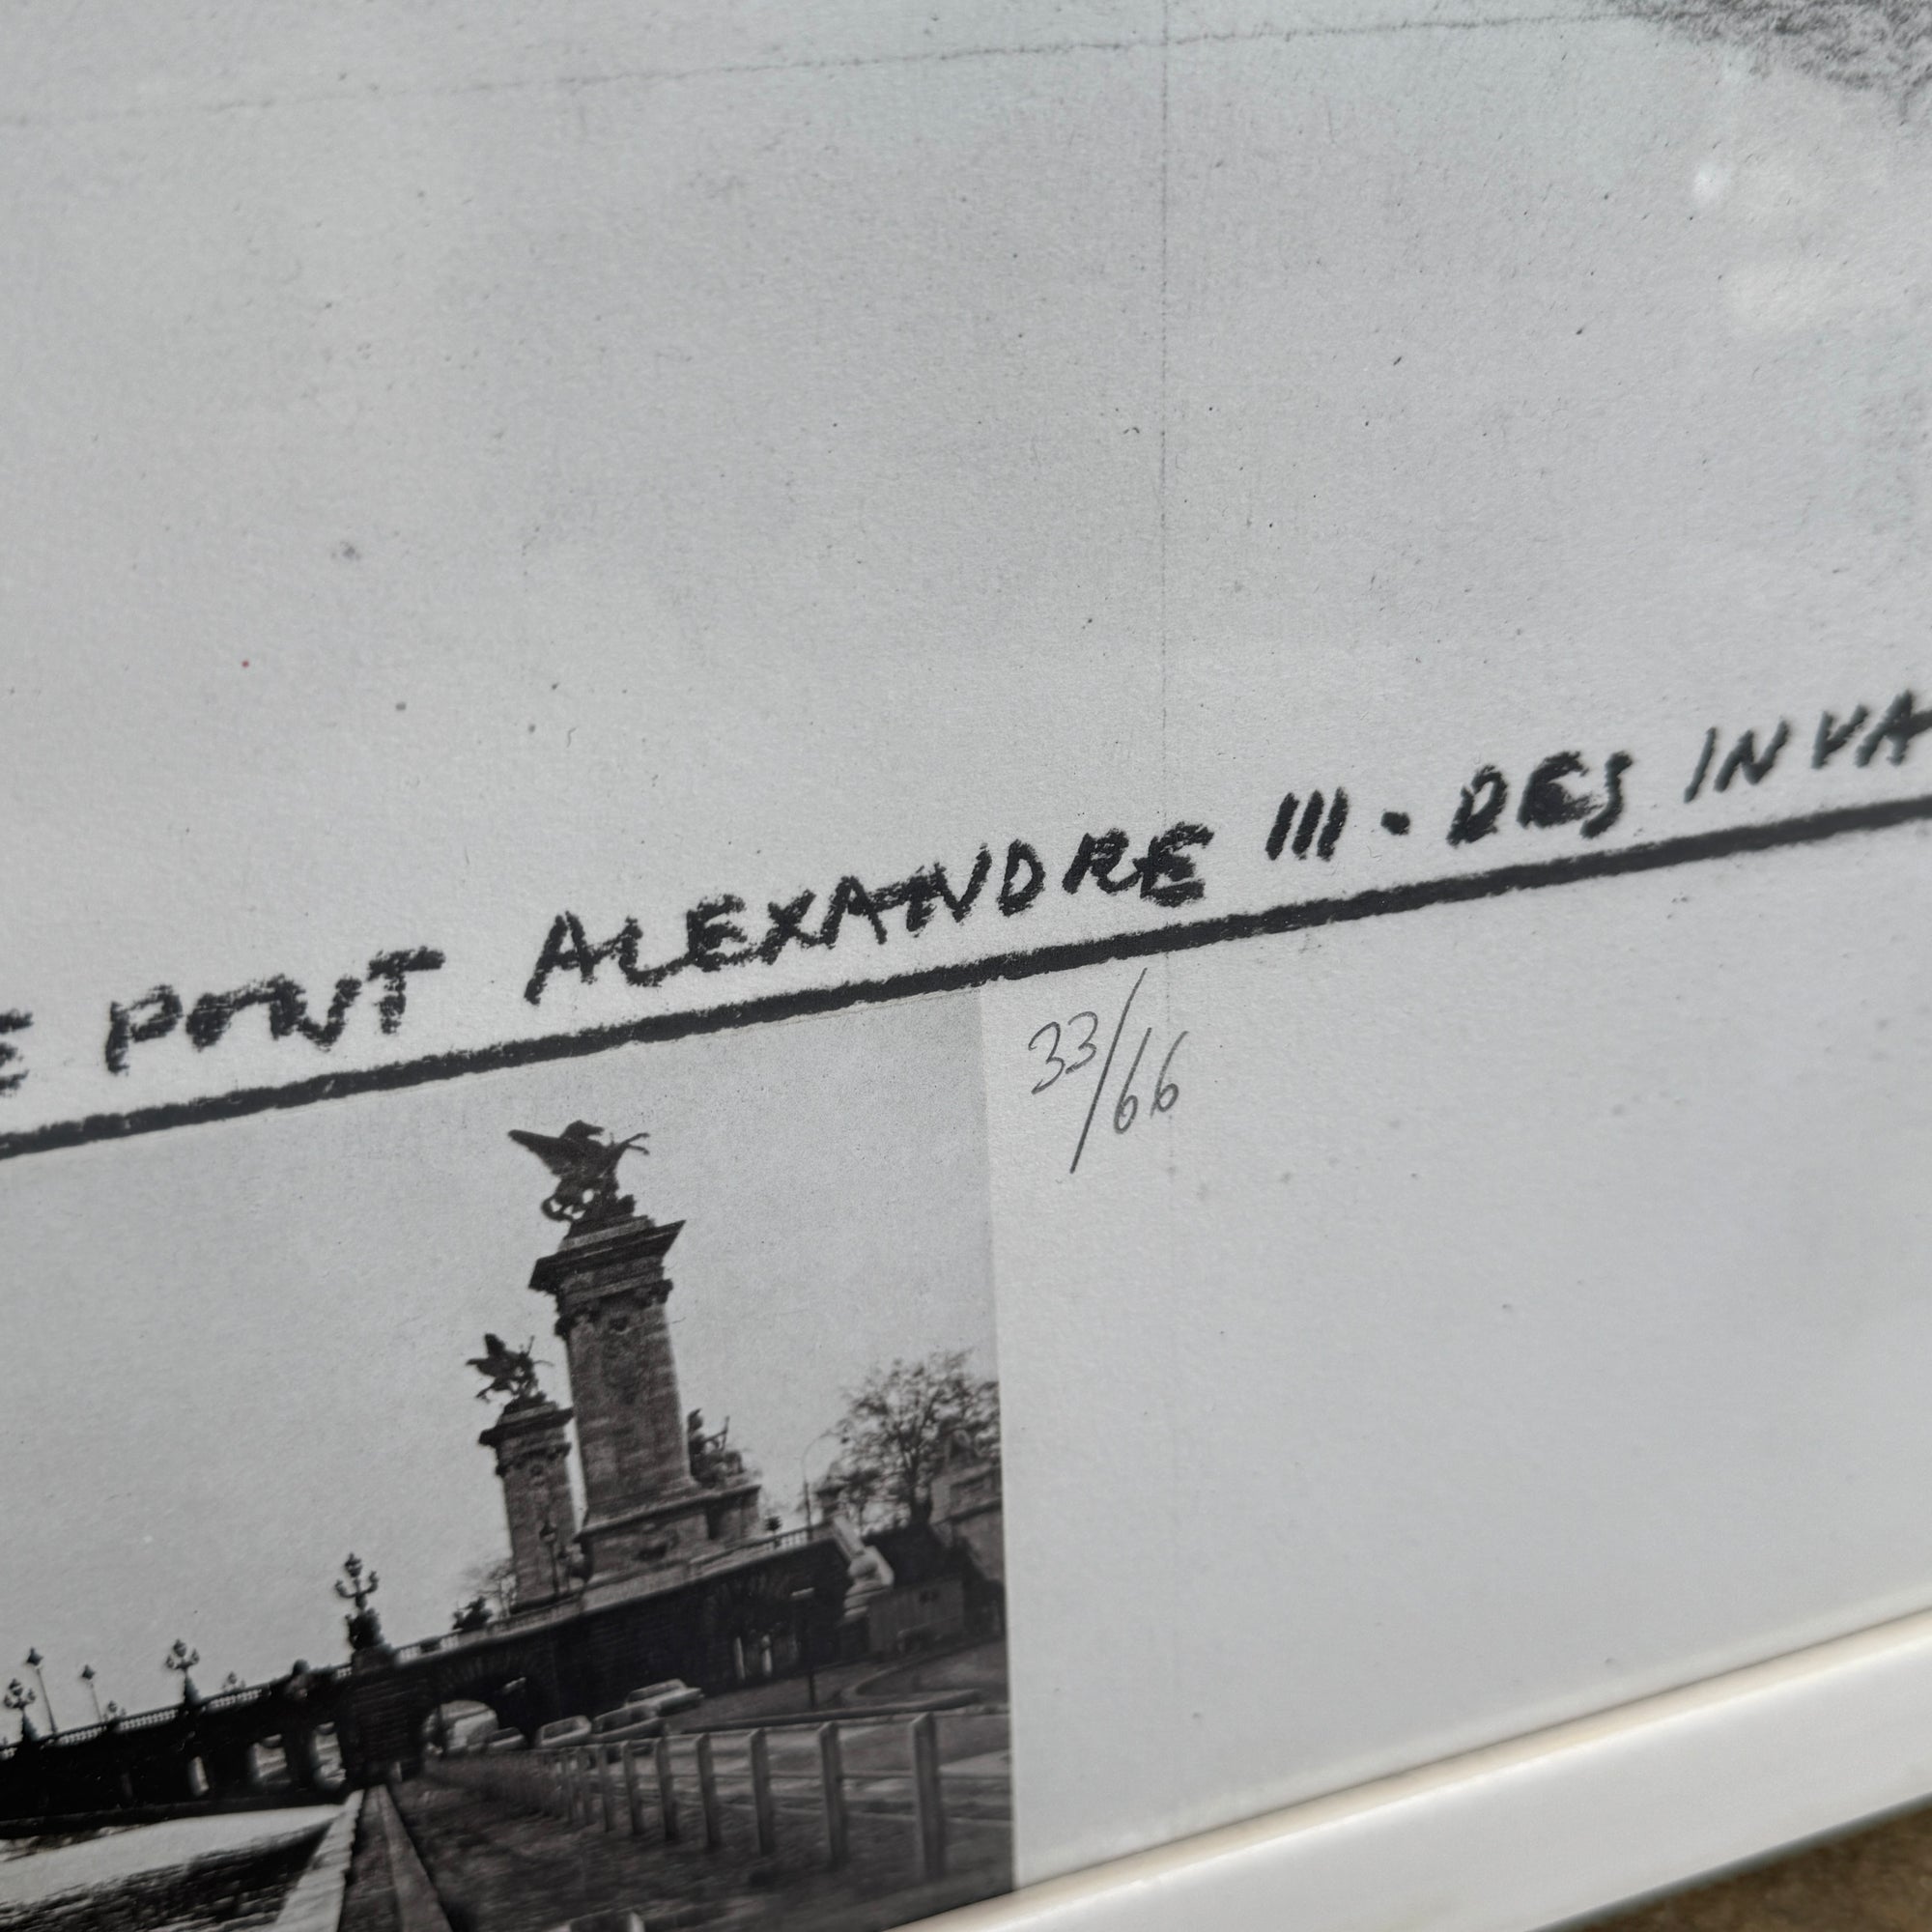 E PONT ALEXANDRE III · DES INVA
33/66